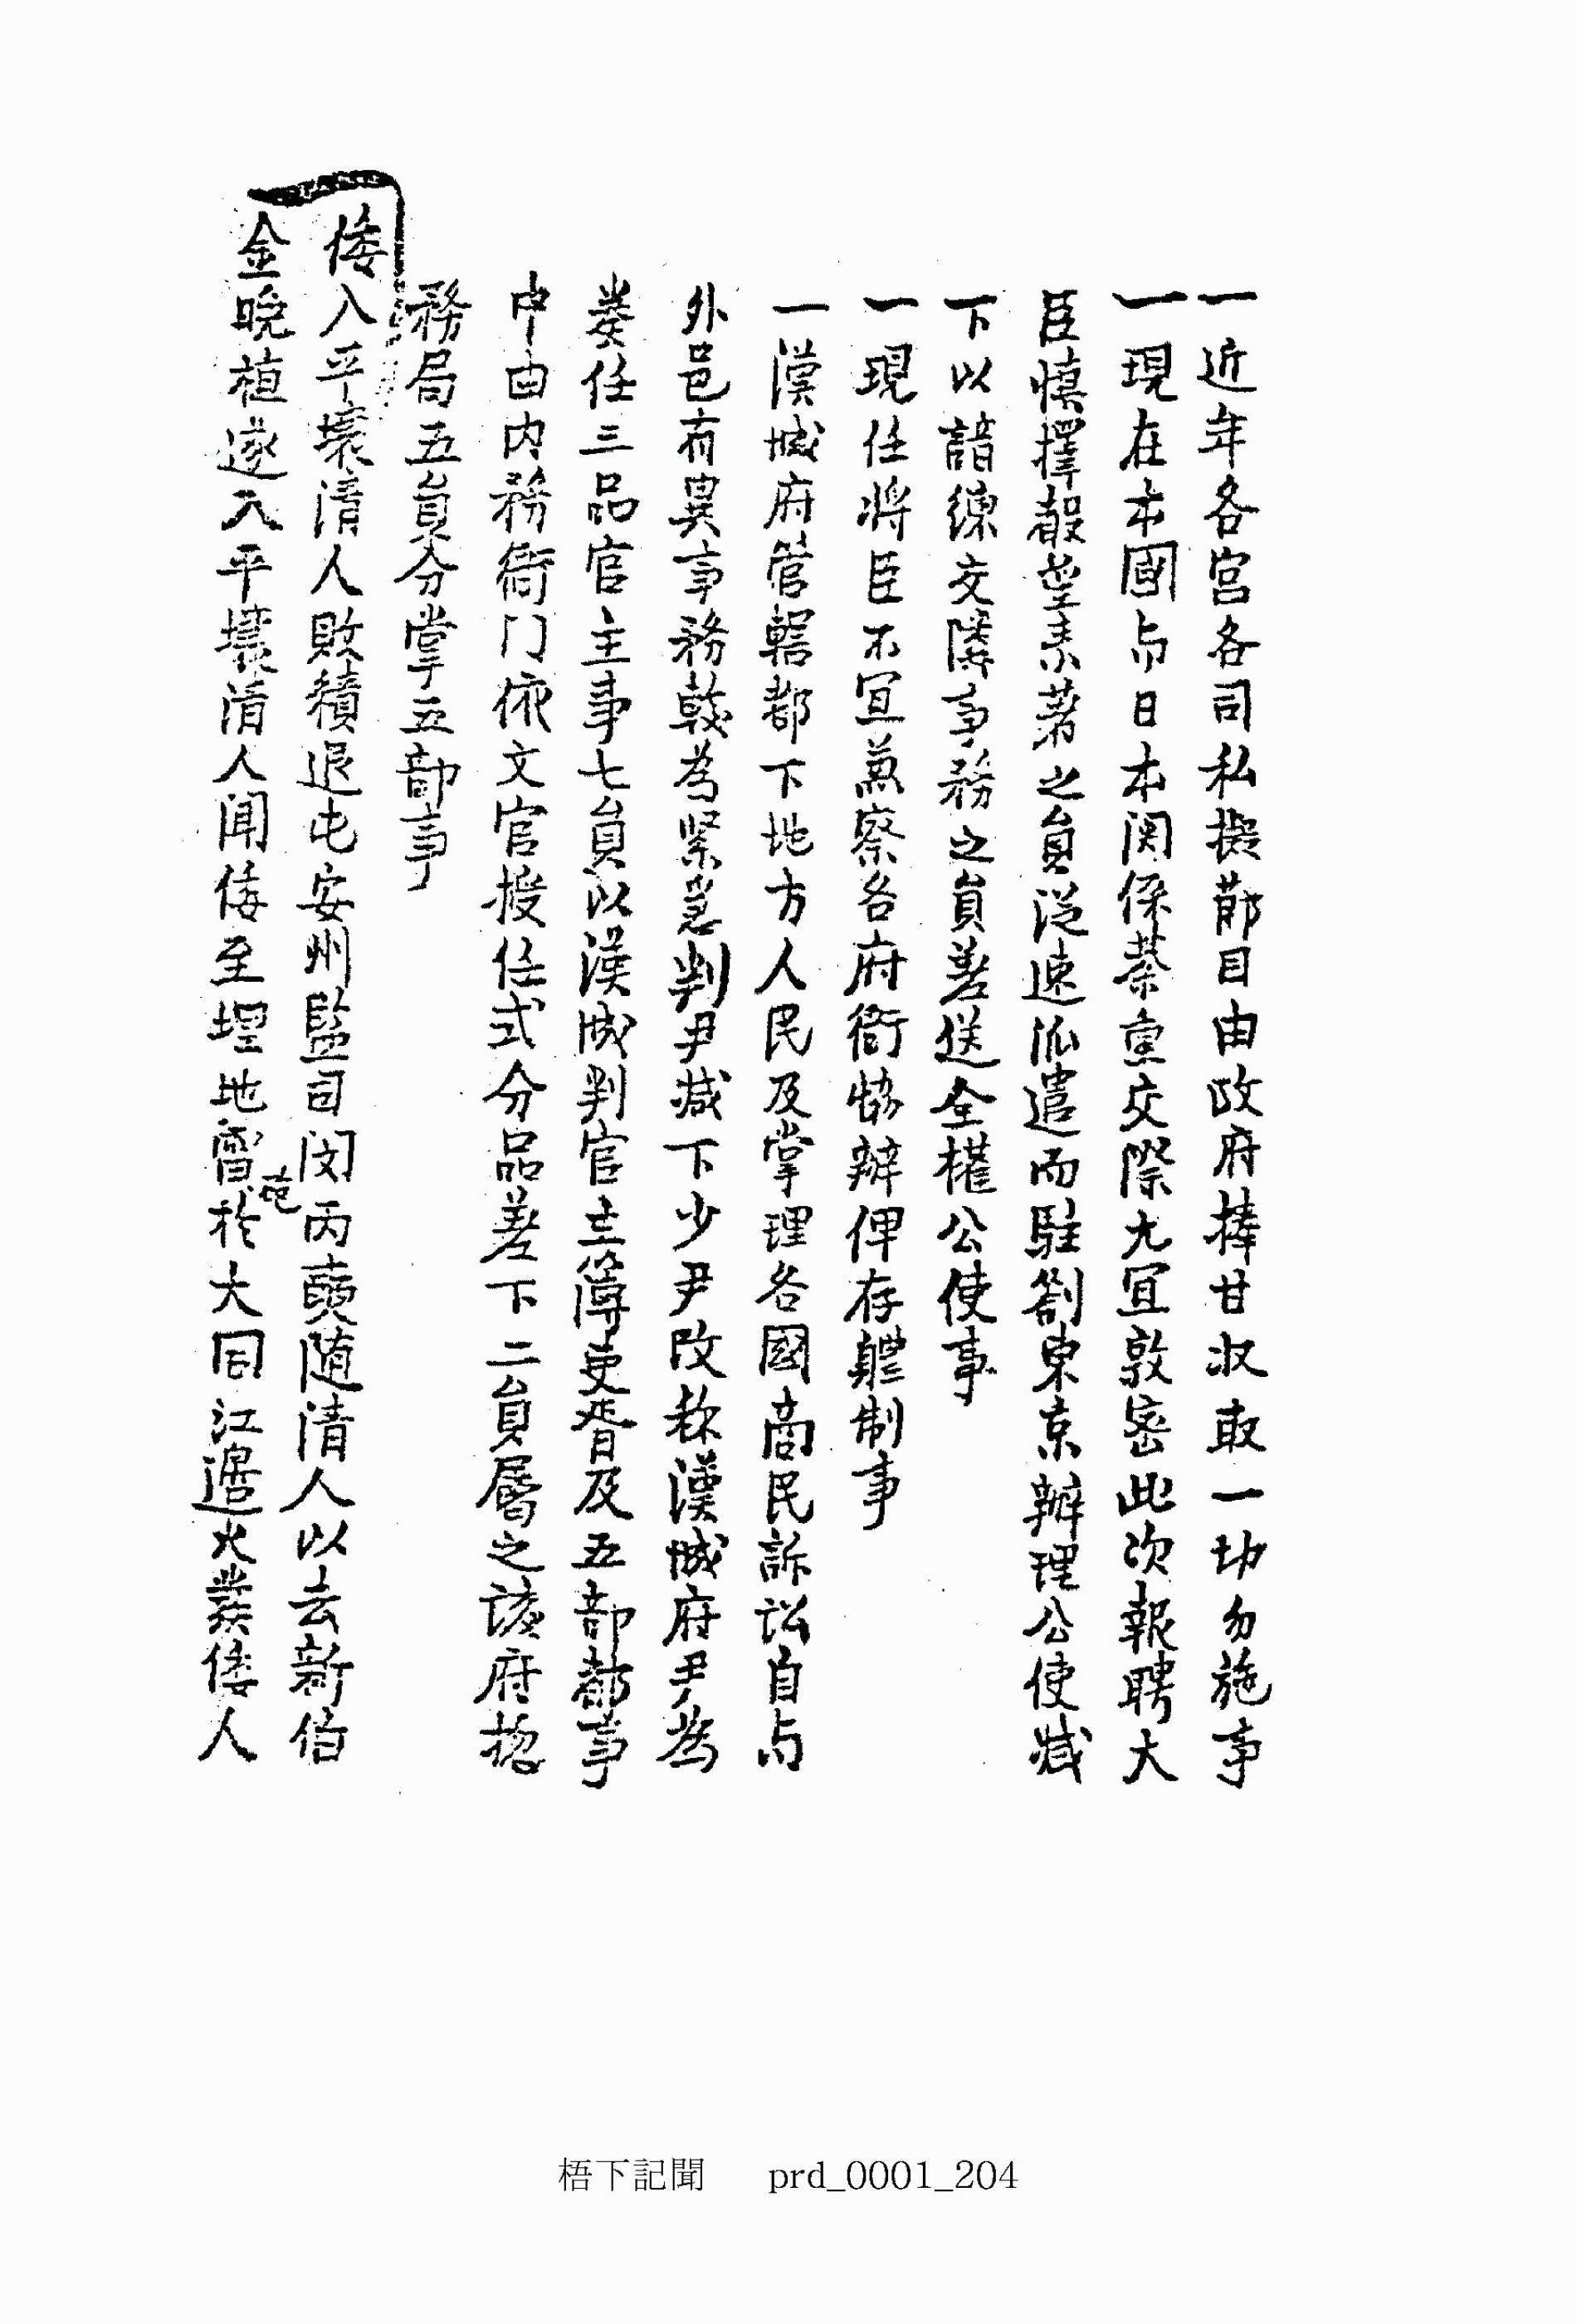 一近年各宮各司私擬節目由政府捧甘収取一切勿施事
一現在本國与日本関係綦重交際尤宜敦密此次報聘大
臣愼擇聲望素著之員從速派遣而駐劄東京辦理公使減
下以諳練交隣事務之員差送全權公使事
一現任將臣不宜兼察各府衙協辦俾存軆制事
一漢城府管轄都下地方人民及掌理各國商民訴訟自与
外邑有異事務較為緊急判尹減下少尹改称漢城府尹為
奏任三品官主事七員以漢城判官主簿吏胥及五部都事
中由内務衙门依文官授任式分品差下二員屬之該府捴
務局五員分掌五部事
倭入平壤清人敗績退屯安州監司閔丙奭随清人以去新伯
金晩植遂入平壤清人聞倭至埋地雷砲於大同江邊火發倭人
梧下記聞 prd_0001_204